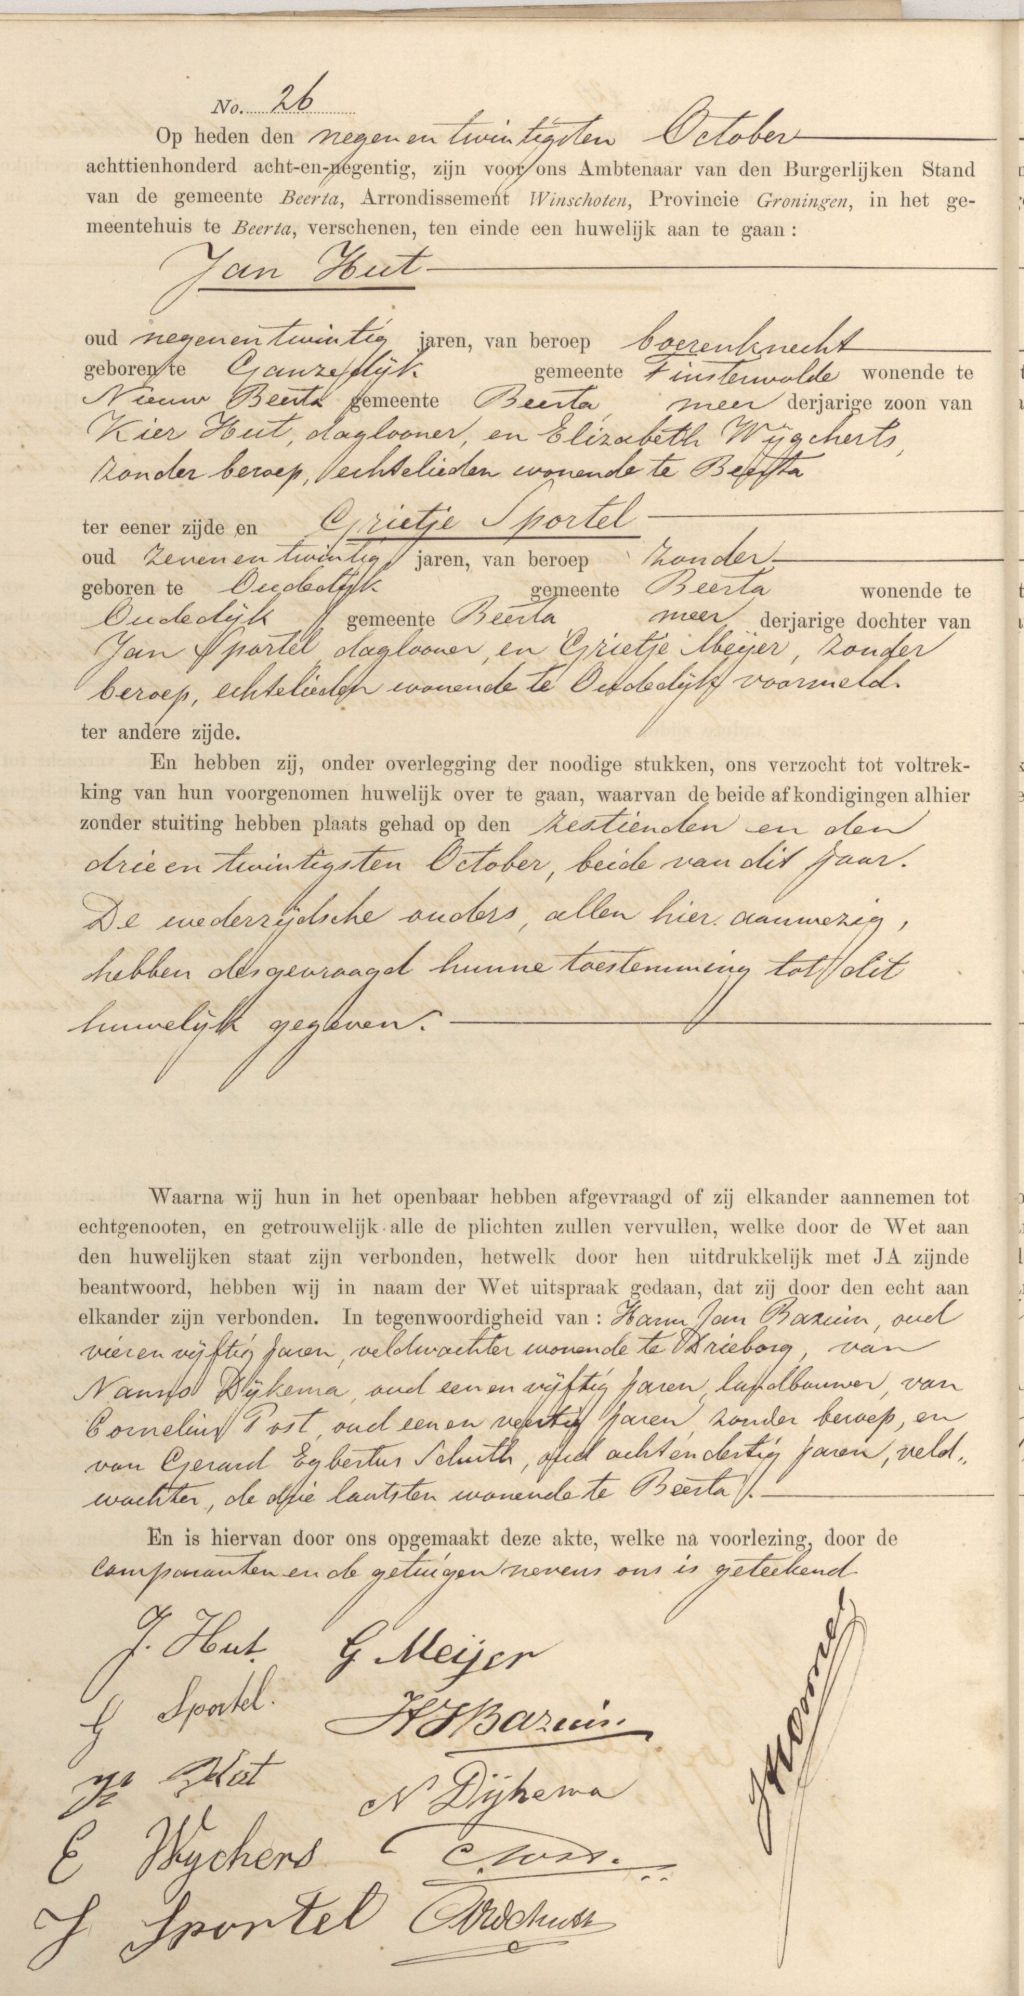 No. 26
Op heden den negen en twintigsten October
achttienhonderd acht-en-negentig, zijn voor ons Ambtenaar van den Burgerlijken Stand
van de gemeente Beerta, Arrondissement Winschoten, Provincie Groningen, in het ge-
meentehuis te Beerta, verschenen, ten einde een huwelijk aan te gaan:
Jan Hut
oud negen en twintig jaren, van beroep boerenknecht
geboren te Ganzedijk gemeente Finsterwolde wonende te
Nieuw Beerta gemeente Beerta, meer derjarige zoon van
Kier Hut, daglooner, en Elizabeth Wijgcherts,
zonder beroep, echtelieden wonende te Beerta
ter eener zijde en Grietje Sportel
oud zeven en twintig jaren, van beroep zonder
geboren te Oudedijk gemeente Beerta wonende te
Oudedijk gemeente Beerta meer derjarige dochter van
Jan Sportel, daglooner, en Grietje Meijer, zonder
beroep, echtelieden wonende te Oudedijk voormeld.
ter andere zijde.
En hebben zij, onder overlegging der noodige stukken, ons verzocht tot voltrek-
king van hun voorgenomen huwelijk over te gaan, waarvan de beide afkondigingen alhier
zonder stuiting hebben plaats gehad op den zestienden en den
drie en twintigsten October, beide van dit jaar.
De wederzijdsche ouders, allen hier aanwezig,
hebben desgevraagd hunne toestemming tot dit
huwelijk gegeven.
Waarna wij hun in het openbaar hebben afgevraagd of zij elkander aannemen tot
echtgenooten, en getrouwelijk alle de plichten zullen vervullen, welke door de Wet aan
den huwelijken staat zijn verbonden, hetwelk door hen uitdrukkelijk met JA zijnde
beantwoord, hebben wij in naam der Wet uitspraak gedaan, dat zij door den echt aan
elkander zijn verbonden. In tegenwoordigheid van: Harm Jan Bazuin, oud
vier en vijftig jaren, veldwachter wonende te Drieborg, van
Nanno Dijkema, oud een en vijftig jaren, landbouwer, van
Cornelius Post, oud een en veertig jaren, zonder beroep, en
van Gerard Egbertus Schuth, oud acht en dertig jaren, veld„
wachter, de drie laatsten wonende te Beerta.
En is hiervan door ons opgemaakt deze akte, welke na voorlezing, door de
comparanten en de getuigen nevens ons is geteekend
J. Hut. G Meijer
G Sportel. HJBazuin.
Hut N Dijkema
E Wychers C. Post.
J Sportel